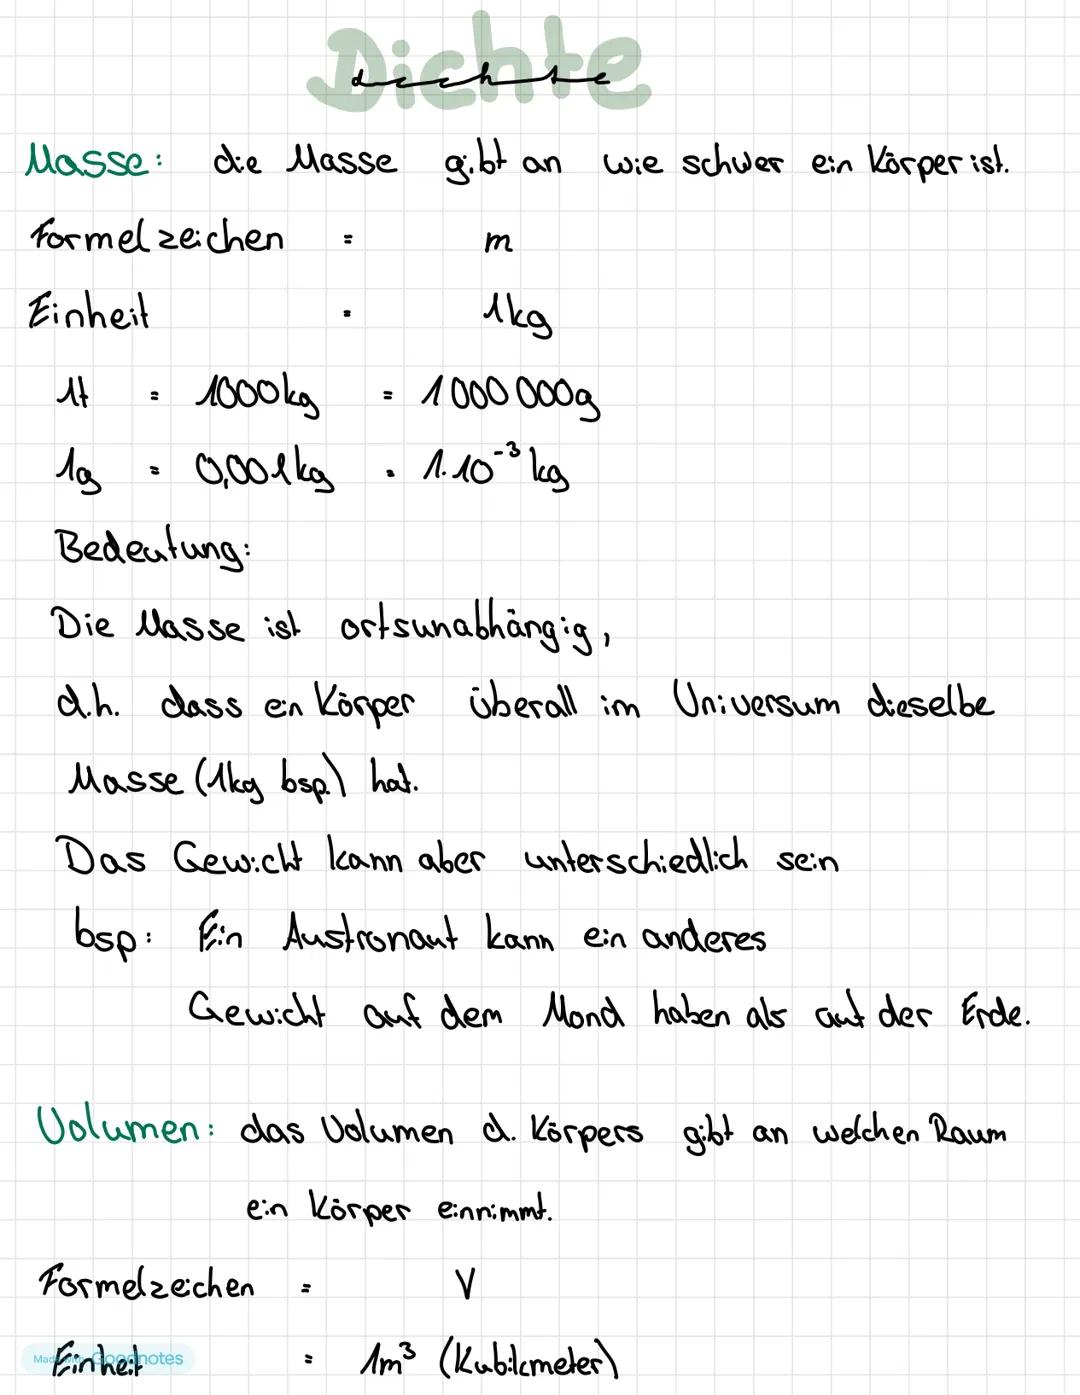 Dichte
dichte
Masse: die Masse gibt an wie schwer ein Körper ist.
Formelzeichen = m
Einheit = 1kg
1t = 1000kg = 1000 000g
1g = 0,001kg = 1·10⁻³ kg
Bedeutung:
Die Masse ist ortsunabhängig,
d.h. dass ein Körper überall im Universum dieselbe
Masse (1kg bsp.) hat.
Das Gewicht kann aber unterschiedlich sein
bsp: Ein Austronaut kann ein anderes
Gewicht auf dem Mond haben als auf der Erde.
Volumen: das Volumen d. Körpers gibt an welchen Raum
ein Körper einnimmt.
Formelzeichen = V
Einheit = 1m³ (Kubikmeter)
Made with Goodnotes